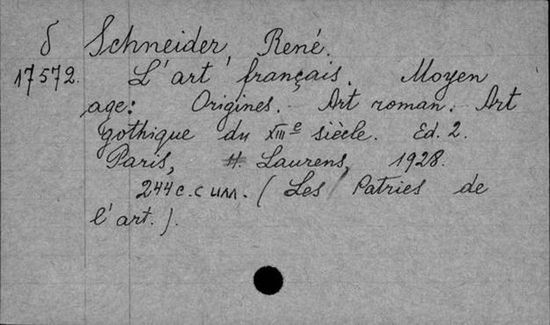 δ Schneider, René.
17572. L'art français. Moyen
age: Origines. Art roman. Art
gothique du XIIIe siècle. Ed. 2.
Paris, H. Laurens, 1928.
244 c. с илл. (Les Patries de
l'art.).